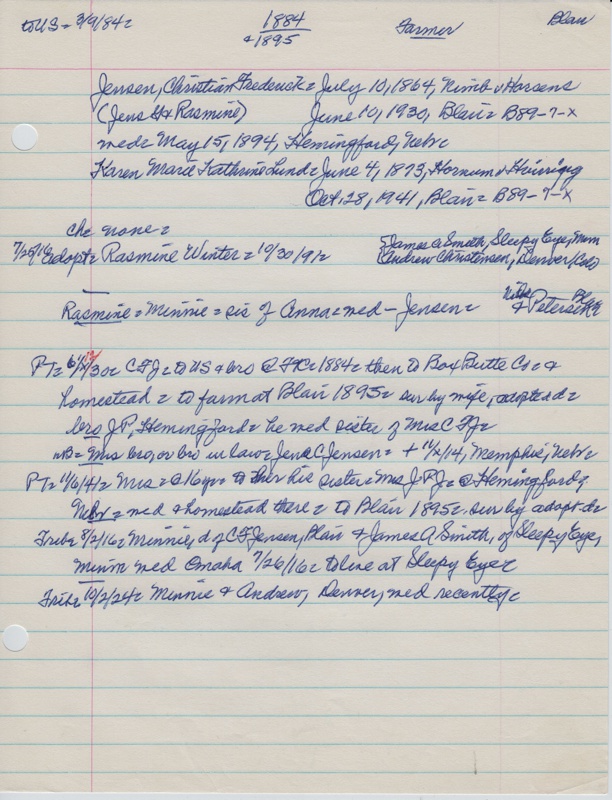 to US = 3/9/84= 1884 Farmer Blair
+ 1895
Jensen, Christian Frederick = July 10, 1864, Nimb v Horsens
(Jens & Rasmine) June 10, 1930, Blair = B89-7-X
med = May 15, 1894, Hemingford, Nebr =
Karen Marie Kathrine Lund = June 4, 1873, Hornum v
Oct. 28, 1941, Blair = B89-7-X
ch = none =
7/25/16 adopt = Rasmine Winter = 10/30/91= James A Smith, Sleepy Eye, Minn
Andrew Christensen, Denver, Colo
Rasmine = Minnie = sis of Anna = med - Jensen = & Petersen
PT= CFJ = to US & bro @ = 1884 = then to Box Butte Co = &
homestead = to farm at Blair 1895 = sur by wife, adopted d =
bro J P, Hemingford = he med sister of Mrs C F J =
NB = Mrs bro, or bro in law = Jens C Jensen = + 11/x/14, Memphis, Nebr =
PT= 11/6/41= Mrs = @ 16 yr = to her sister = Mrs J P J = @ Hemingford,
Nebr = med & homestead there = to Blair 1895 = sur by adopt d =
Trib= 8/2/16= Minnie, d of CF Jensen, Blair & James A. Smith, of Sleepy Eye,
Minn med Omaha 7/26/16 = to live at Sleepy Eye =
Trib= 10/2/24= Minnie & Andrew, Denver, med recently =